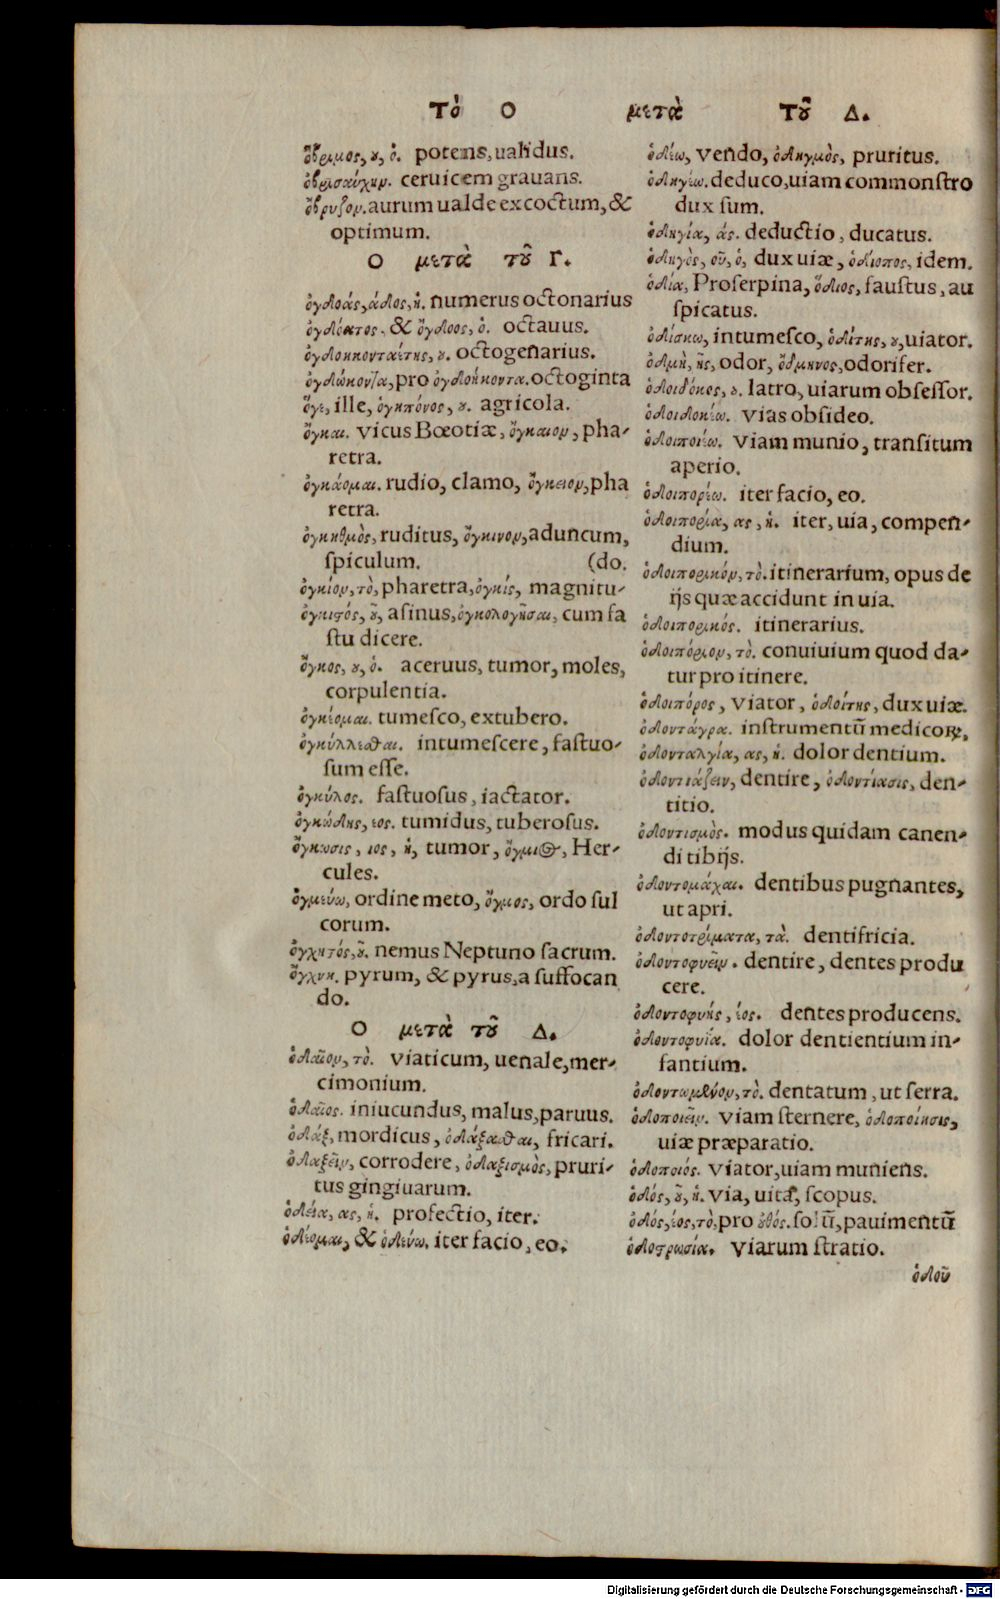 Τὸ Ο μετὰ Τοῦ Δ.
ὄβριμος, ου, ὁ. potens, ualidus.
ὀβρισαύχην. ceruicem grauans.
ὄβρυζον. aurum ualde excoctum, &
optimum.
Ο μετὰ τοῦ Γ.
ὀγδοάς, άδος, ἡ. numerus octonarius
ὀγδόατος. & ὄγδοος, ὁ. octauus.
ὀγδοηκονταέτης, ου. octogenarius.
ὀγδώκοντα, pro ὀγδοήκοντα. octoginta
ὅγε, ille, ὀγηπόνος, ου. agricola.
ὄγκαι. vicus Bœotiæ, ὄγκαιον, pha-
retra.
ὀγκάομαι. rudio, clamo, ὄγκειον, pha
retra.
ὀγκηθμὸς, ruditus, ὄγκινον, aduncum,
spiculum. (do.
ὀγκίον, τὸ, pharetra, ὀγκίς, magnitu-
ὀγκιστός, οῦ, asinus, ὀγκολογῆσαι, cum fa
stu dicere.
ὄγκος, ου, ὁ. aceruus, tumor, moles,
corpulentia.
ὀγκέομαι. tumesco, extubero.
ὀγκύλλεσθαι. intumescere, fastuo-
sum esse.
ὀγκύλος. fastuosus, iactator.
ὀγκώδης, εος. tumidus, tuberosus.
ὄγκωσις, ιος, ἡ, tumor, ὄγμιος, Her-
cules.
ὀγμεύω, ordine meto, ὄγμος, ordo sul
corum.
ὀγχητός, οῦ. nemus Neptuno sacrum.
ὄγχνη. pyrum, & pyrus, a suffocan
do.
Ο μετὰ τοῦ Δ.
ὁδαῖον, τὸ. viaticum, uenale, mer-
cimonium.
ὁδαῖος. iniucundus, malus, paruus.
ὀδάξ, mordicus, ὀδάξασθαι, fricari.
ὀδαξεῖν, corrodere, ὀδαξισμὸς, pruri-
tus gingiuarum.
ὁδεία, ας, ἡ. profectio, iter.
ὁδέομαι, & ὁδεύω. iter facio, eo.
ὁδέω, vendo, ὀδηγμὸς, pruritus.
ὁδηγέω. deduco, uiam commonstro
dux sum.
ὁδηγία, άς. deductio, ducatus.
ὁδηγὸς, οῦ, ὁ, dux uiæ, ὁδίοπος, idem.
ὁδία, Proserpina, ὅδιος, faustus, au
spicatus.
ὀδίσκω, intumesco, ὁδίτης, ου, uiator.
ὀδμὴ, ῆς, odor, ὄδμηνος, odorifer.
ὁδοιδόκος, ου. latro, uiarum obsessor.
ὁδοιδοκέω. vias obsideo.
ὁδοιποιέω. viam munio, transitum
aperio.
ὁδοιπορέω. iter facio, eo.
ὁδοιπορία, ας, ἡ. iter, uia, compen-
dium.
ὁδοιπορικόν, τὸ. itinerarium, opus de
ijs quæ accidunt in uia.
ὁδοιπορικός. itinerarius.
ὁδοιπόριον, τὸ. conuiuium quod da-
tur pro itinere.
ὁδοιπόρος, viator, ὁδοίτης, dux uiæ.
ὀδοντάγρα. instrumentū medicoꝝ,
ὀδονταλγία, ας, ἡ. dolor dentium.
ὀδοντιάζειν, dentire, ὀδοντίασις, den-
titio.
ὀδοντισμὸς. modus quidam canen-
di tibijs.
ὀδοντομάχαι. dentibus pugnantes,
ut apri.
ὀδοντοτρίματα, τὰ. dentifricia.
ὀδοντοφυεῖν. dentire, dentes produ
cere.
ὀδοντοφυής, έος. dentes producens.
ὀδοντοφυΐα. dolor dentientium in-
fantium.
ὀδοντωμένον, τὸ. dentatum, ut serra.
ὁδοποιεῖν. viam sternere, ὁδοποίησις,
uiæ præparatio.
ὁδοποιός. viator, uiam muniens.
ὁδός, οῦ, ἡ. via, uita, scopus.
ὁδός, έος, τὸ, pro οὐδός. solū, pauimentū
ὁδοστρωσία. viarum stratio.
ὁδοῦ
Digitalisierung gefördert durch die Deutsche Forschungsgemeinschaft - DFG